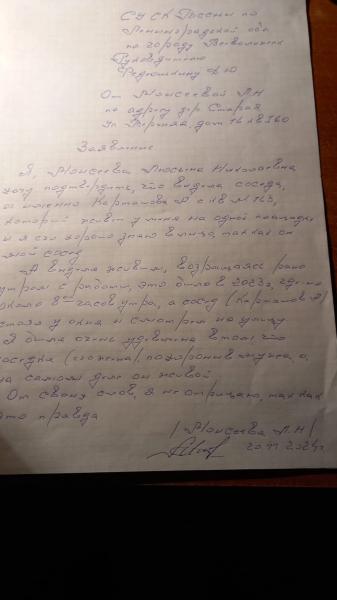 СУ СК России по
Ленинградской обл
по городу Всеволожск
Руководителю
Федюшкину Д Ю
От Моисеевой Л.Н
по адресу дер Старая
Ул Верхняя, дом 16 кв 160
Заявление
Я, Моисеева Люсьена Николаевна
хочу подтвердить, что видела соседа,
а именно Картанова А с кв №163,
который живёт у меня на одной площадке
и я его хорошо знаю в лицо, так как он
мой сосед
А видела живым, возвращаясь рано
утром с работы, это было в 2023г, где-то
около 8ми часов утра, а сосед (Картанов А)
стоял у окна и смотрел на улицу
Я была очень удивлена в том, что
соседка (его жена) похоронив мужа, а
на самом деле он живой.
От своих слов, я не отрицаю, так как
это правда
/ Моисеева Л.Н /
20.11.2024г